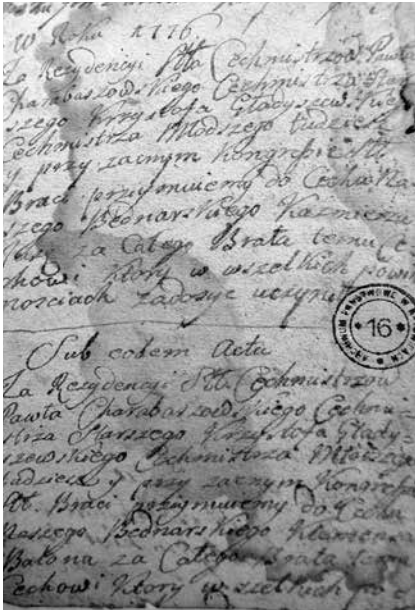 W Roku 1776
Za Rezydencyi Stł. Cechmistrzów Pawła
Charabaszowskiego Cechmistrza Star
szego Krzysztofa Gładyszewskie
Cechmistrza Młodszego tudziesz
y przy zacnym Kongressie Stł.
Braci przyimuiemy do Cechu Na
szego Bednarskiego Kazimierza
za Całego Brata temu C
chowi Ktory w wszelkich powin
nosciach zadosyc uczynił
ARCHIWUM PAŃSTWOWE W
16
Sub eodem Actu
Za Rezydencyi Stł. Cechmistrzow
Pawła Charabaszowskiego Cechmi-
strza Starszego Krzysztofa Głady-
szowskiego Cechmistrza Młodszego
tudziesz y przy zacnym Kongress
Stł. Braci przyimuiemy do Cechu
Naszego Bednarskiego Klamensa
Batona za Całego Brata temu
Cechowi Ktory w szelkich po